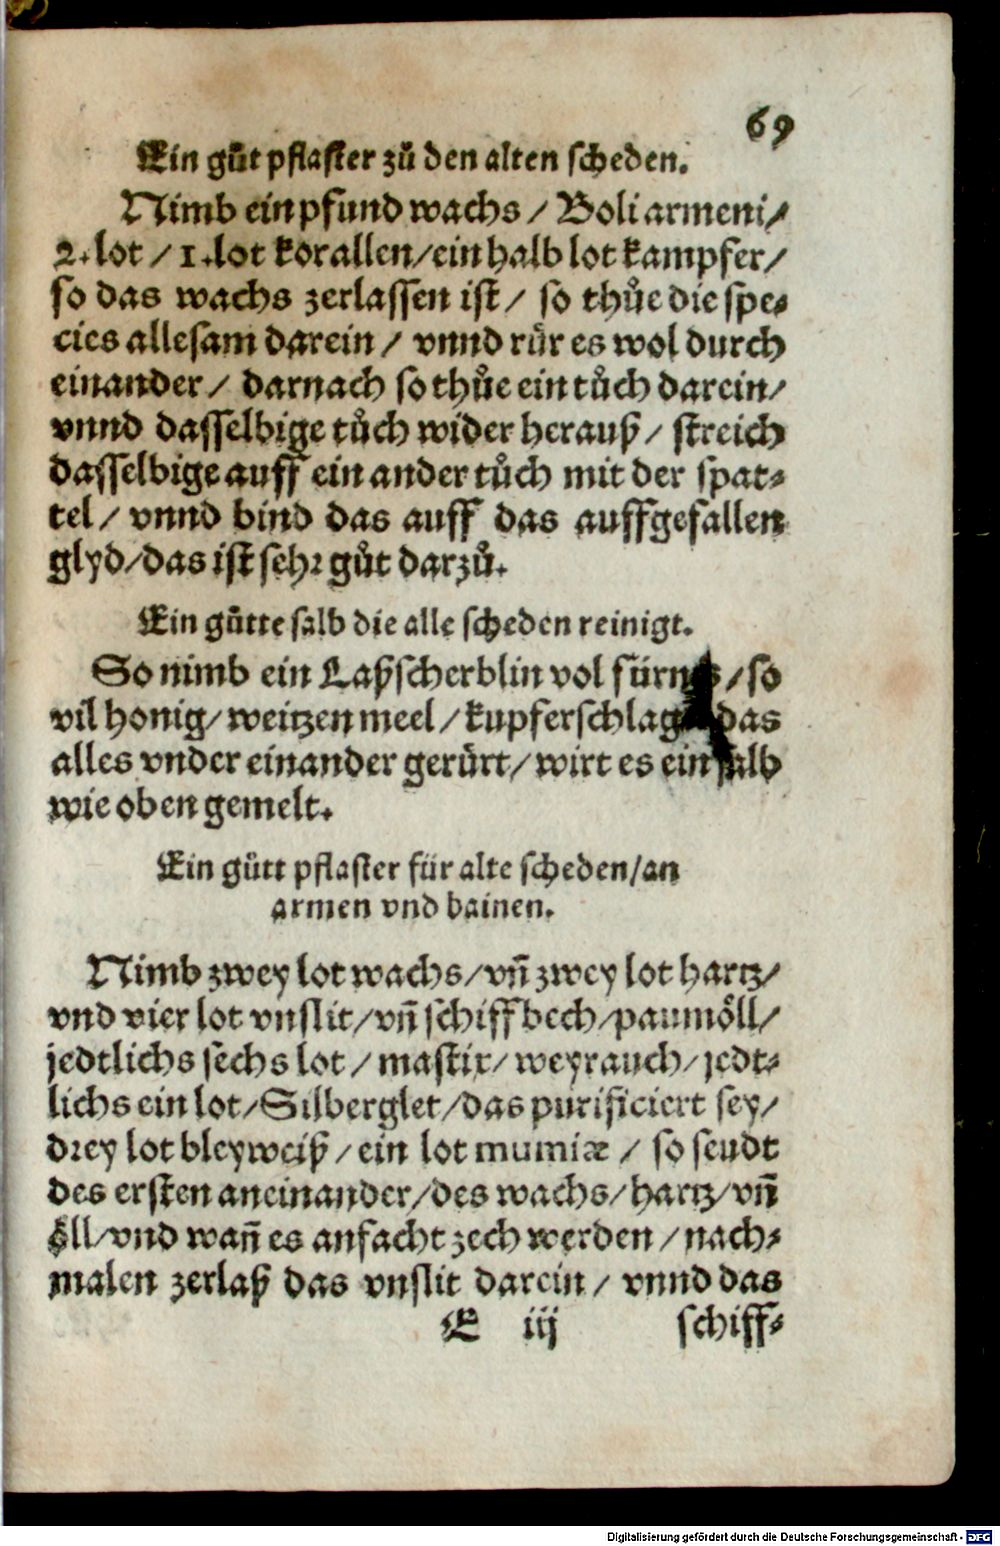 69
Ein gůt pflaster zů den alten scheden.
Nimb ein pfund wachs / Boli armeni /
2. lot / 1. lot korallen / ein halb lot kampfer /
so das wachs zerlassen ist / so thůe die spe⸗
cies allesam darein / vnnd růr es wol durch
einander / darnach so thůe ein tůch darein /
vnnd dasselbige tůch wider herauß / streich
dasselbige auff ein ander tůch mit der spat⸗
tel / vnnd bind das auff das auffgefallen
glyd / das ist sehr gůt darzů.
Ein gůtte salb die alle scheden reinigt.
So nimb ein Laßscherblin vol / so
vil honig / weitzen meel / das
alles vnder einander gerůrt / wirt es ein salb
wie oben gemelt.
Ein gůtt pflaster für alte scheden / an
armen vnd bainen.
Nimb zwey lot wachs / vñ zwey lot hartz /
vnd vier lot vnslit / vñ schiff bech / paumöll /
jedtlichs sechs lot / mastix / weyrauch / jedt⸗
lichs ein lot / Silberglet / das purificiert sey /
drey lot bleyweiß / ein lot mumiæ / so seudt
des ersten aneinander / des wachs / hartz / vñ
öll / vnd wañ es anfacht zech werden / nach⸗
malen zerlaß das vnslit darein / vnnd das
E iij schiff⸗
Digitalisierung gefördert durch die Deutsche Forschungsgemeinschaft - DFG